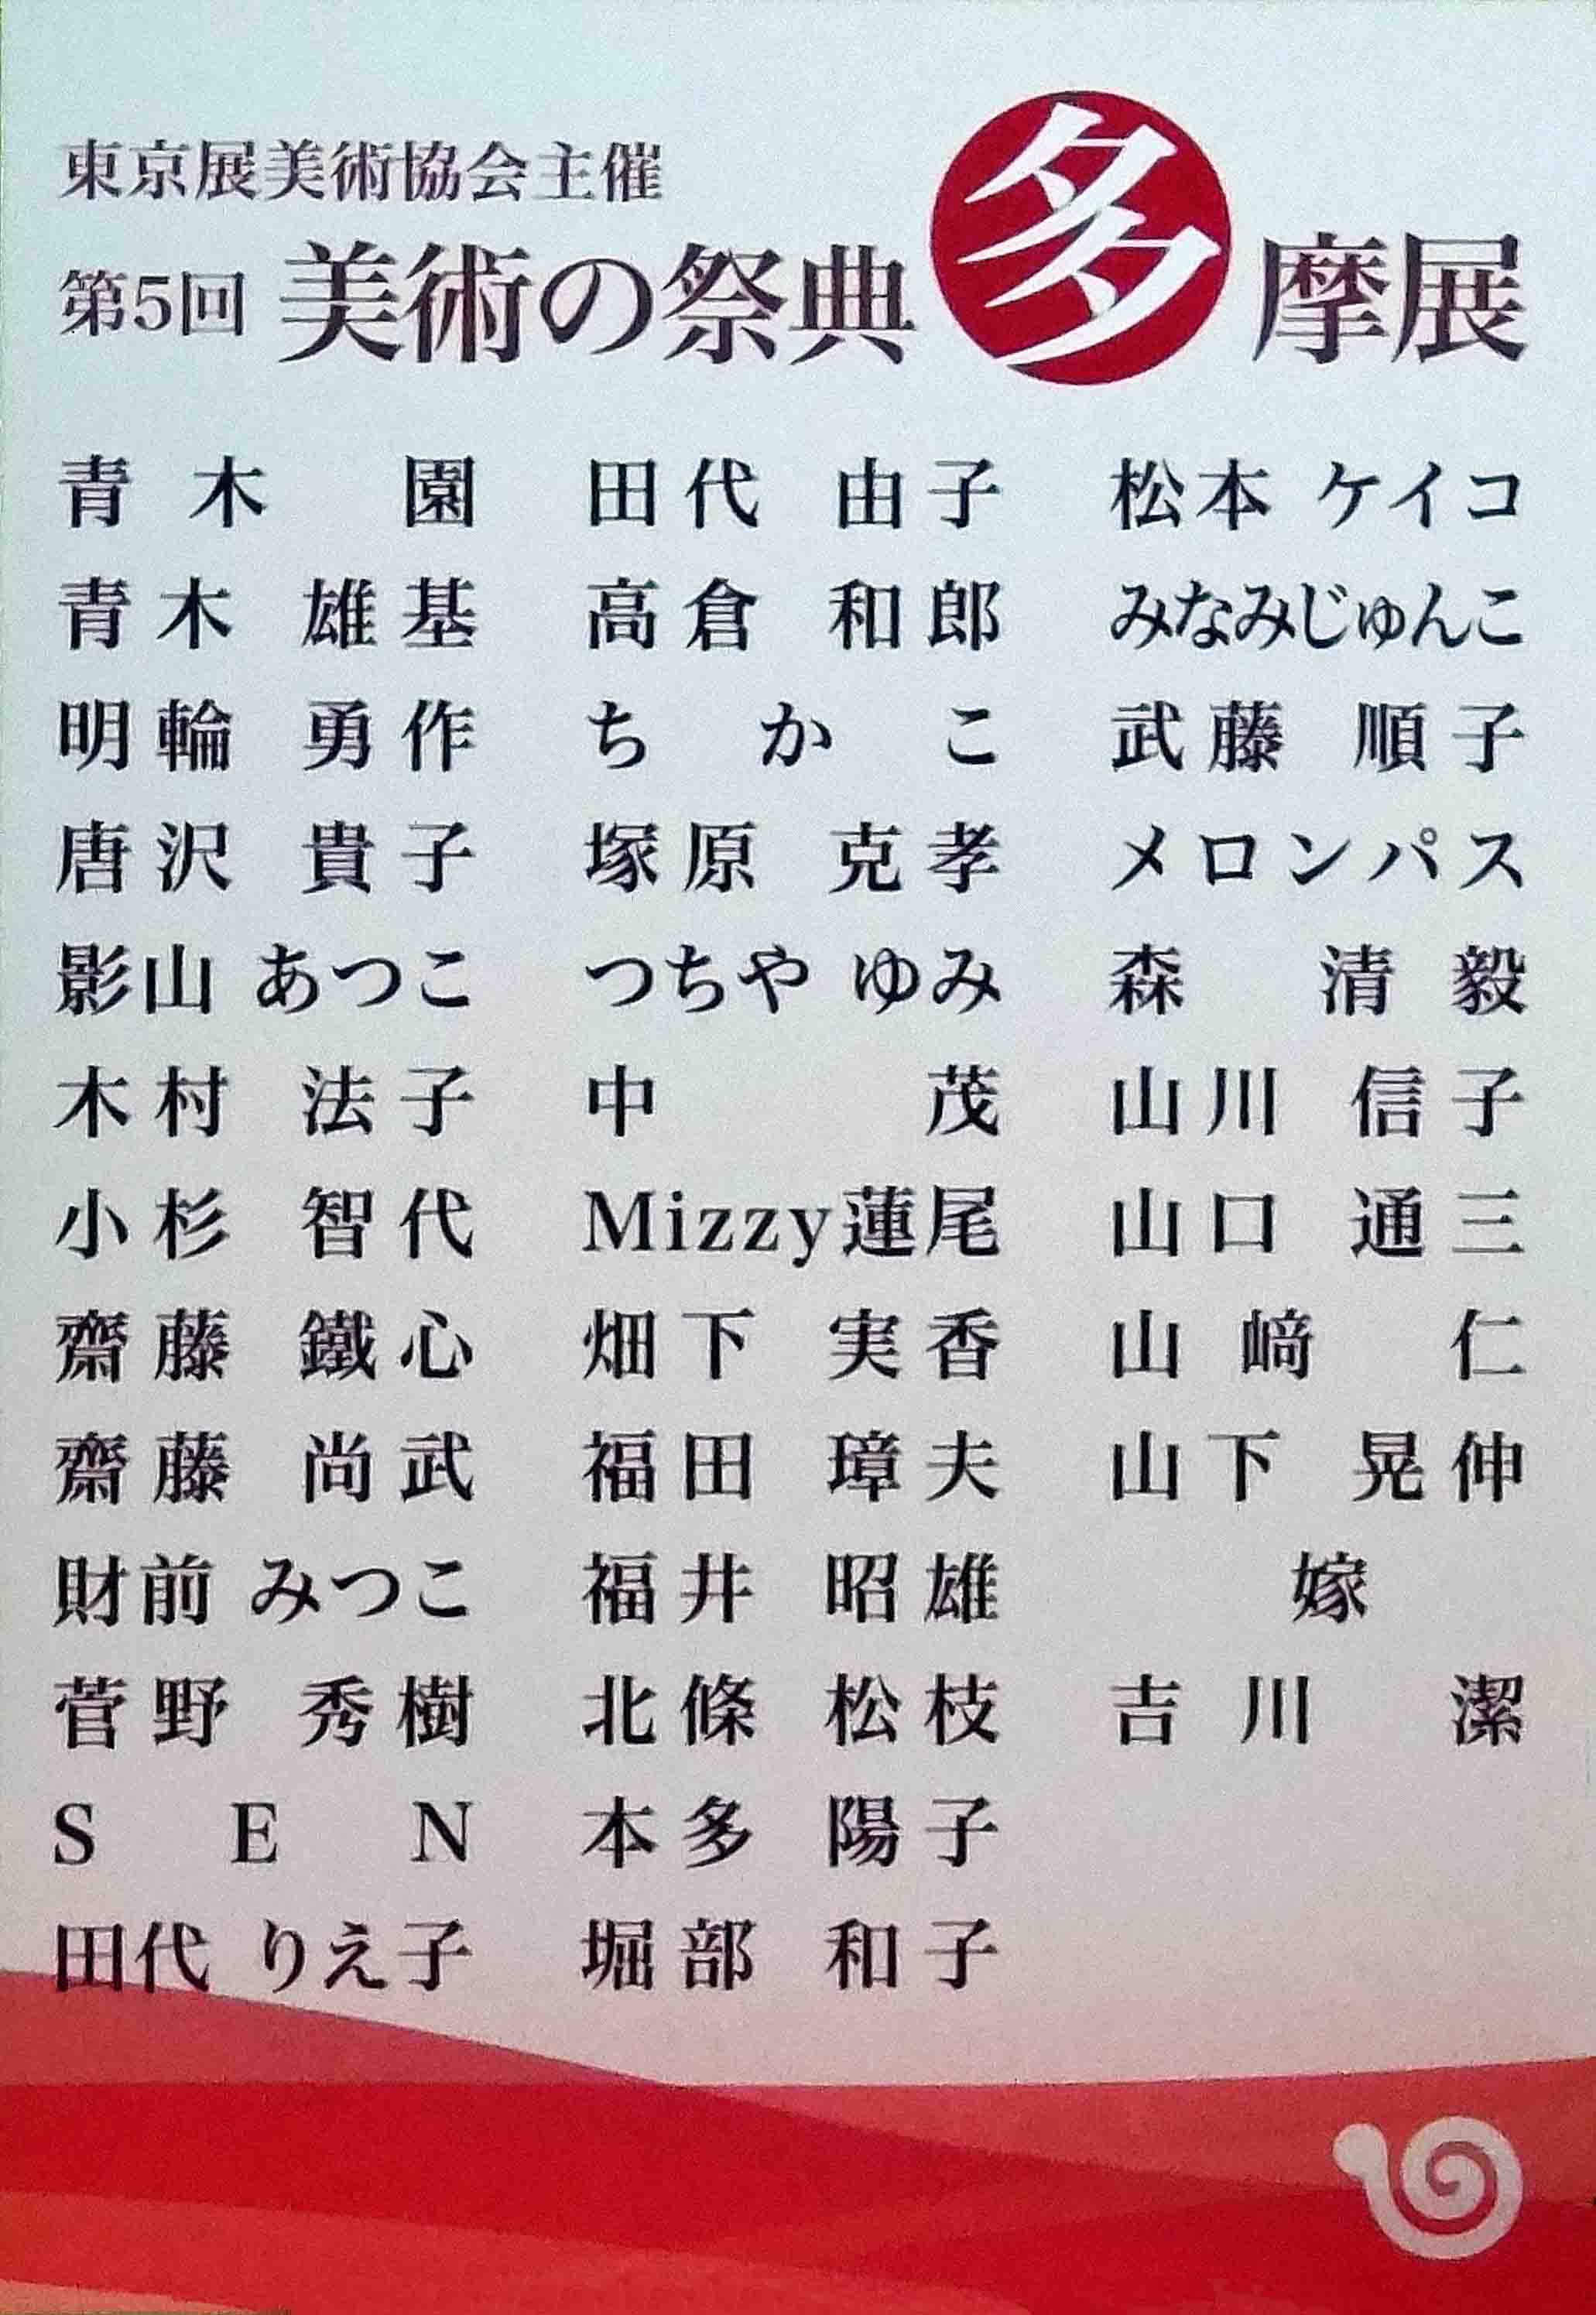 東京展美術協会主催
第5回 美術の祭典 多摩展
青木 園
青木 雄基
明輪 勇作
唐沢 貴子
影山 あつこ
木村 法子
小杉 智代
齋藤 鐵心
齋藤 尚武
財前 みつこ
菅野 秀樹
SEN
田代 りえ子
田代 由子
高倉 和郎
ちかこ
塚原 克孝
つちや ゆみ
中 茂
Mizzy蓮尾
畑下 実香
福田 璋夫
福井 昭雄
北條 松枝
本多 陽子
堀部 和子
松本 ケイコ
みなみじゅんこ
武藤 順子
メロンパス
森 清毅
山川 信子
山口 通三
山﨑 仁
山下 晃伸
嫁
吉川 潔